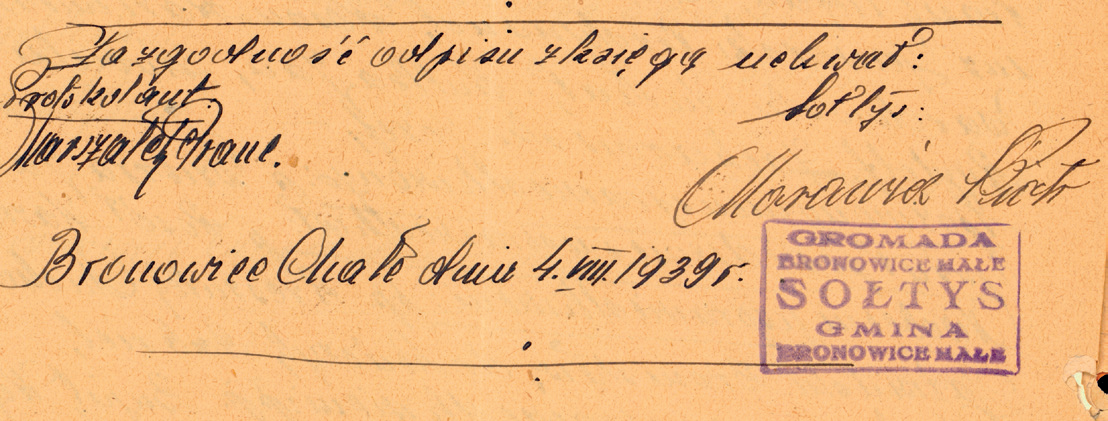 Za zgodność odpisu z księgą uchwał:
Protokolant. Sołtys:
Marszałek Franc.
Morawiec Piotr
Bronowice Małe dnia 4.VIII.1939 r.
GROMADA
BRONOWICE MAŁE
SOŁTYS
GMINA
BRONOWICE MAŁE